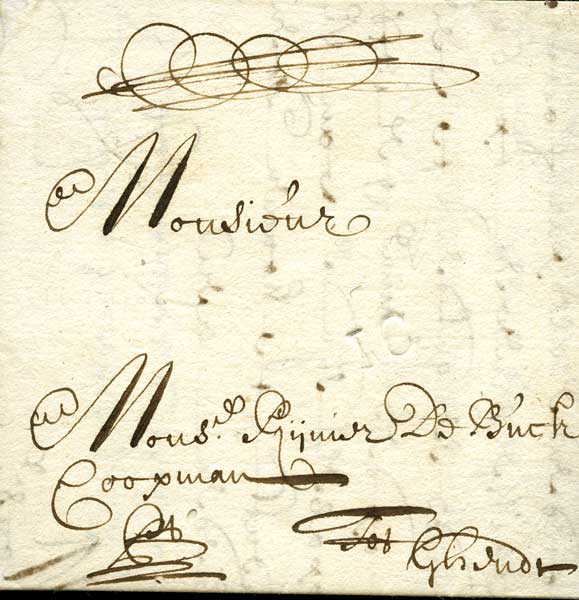 Monsieur
Mons.r Rijnier De Buck
Coopman
Tot
Ghendt